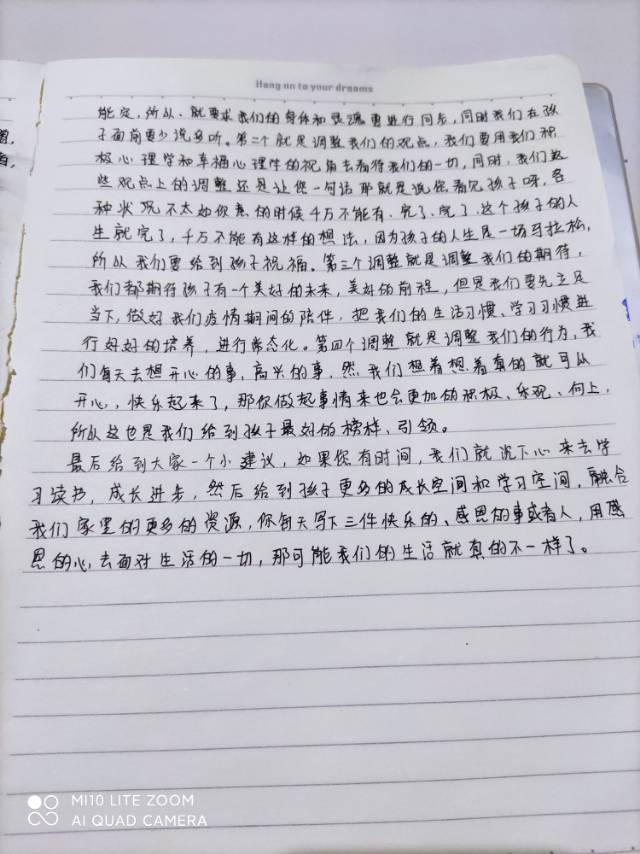 Hang on to your dreams
能定,所以、就要求我们的身体和灵魂要进行同步,同时我们在孩
子面前要少说多听。第二个就是调整我们的观点,我们要用我们积
极心理学和幸福心理学的视角去看待我们的一切,同时,我们这
些观点上的调整还是让您一句话那就是说您看见孩子呀,各
种状况不太如你意的时候千万不能有、完了、完了、这个孩子的人
生就完了,千万不能有这样的想法,因为孩子的人生是一场马拉松,
所以我们要给到孩子祝福。第三个调整就是调整我们的期待,
我们都期待孩子有一个美好的未来,美好的前程,但是我们要先立足
当下,做好我们疫情期间的陪伴,把我们的生活习惯、学习习惯进
行好好的培养,进行常态化。第四个调整就是调整我们的行为,我
们每天去想开心的事,高兴的事,然,我们想着想着真的就可以
开心,快乐起来了,那你做起事情来也会更加的积极、乐观、向上,
所以这也是我们给到孩子最好的榜样、引领。
最后给到大家一个小建议,如果您有时间,我们就沉下心来去学
习读书,成长进步,然后给到孩子更多的成长空间和学习空间,融合
我们家里的更多的资源,你每天写下三件快乐的、感恩的事或者人,用感
恩的心去面对生活的一切,那可能我们的生活就真的不一样了。
MI10 LITE ZOOM
AI QUAD CAMERA